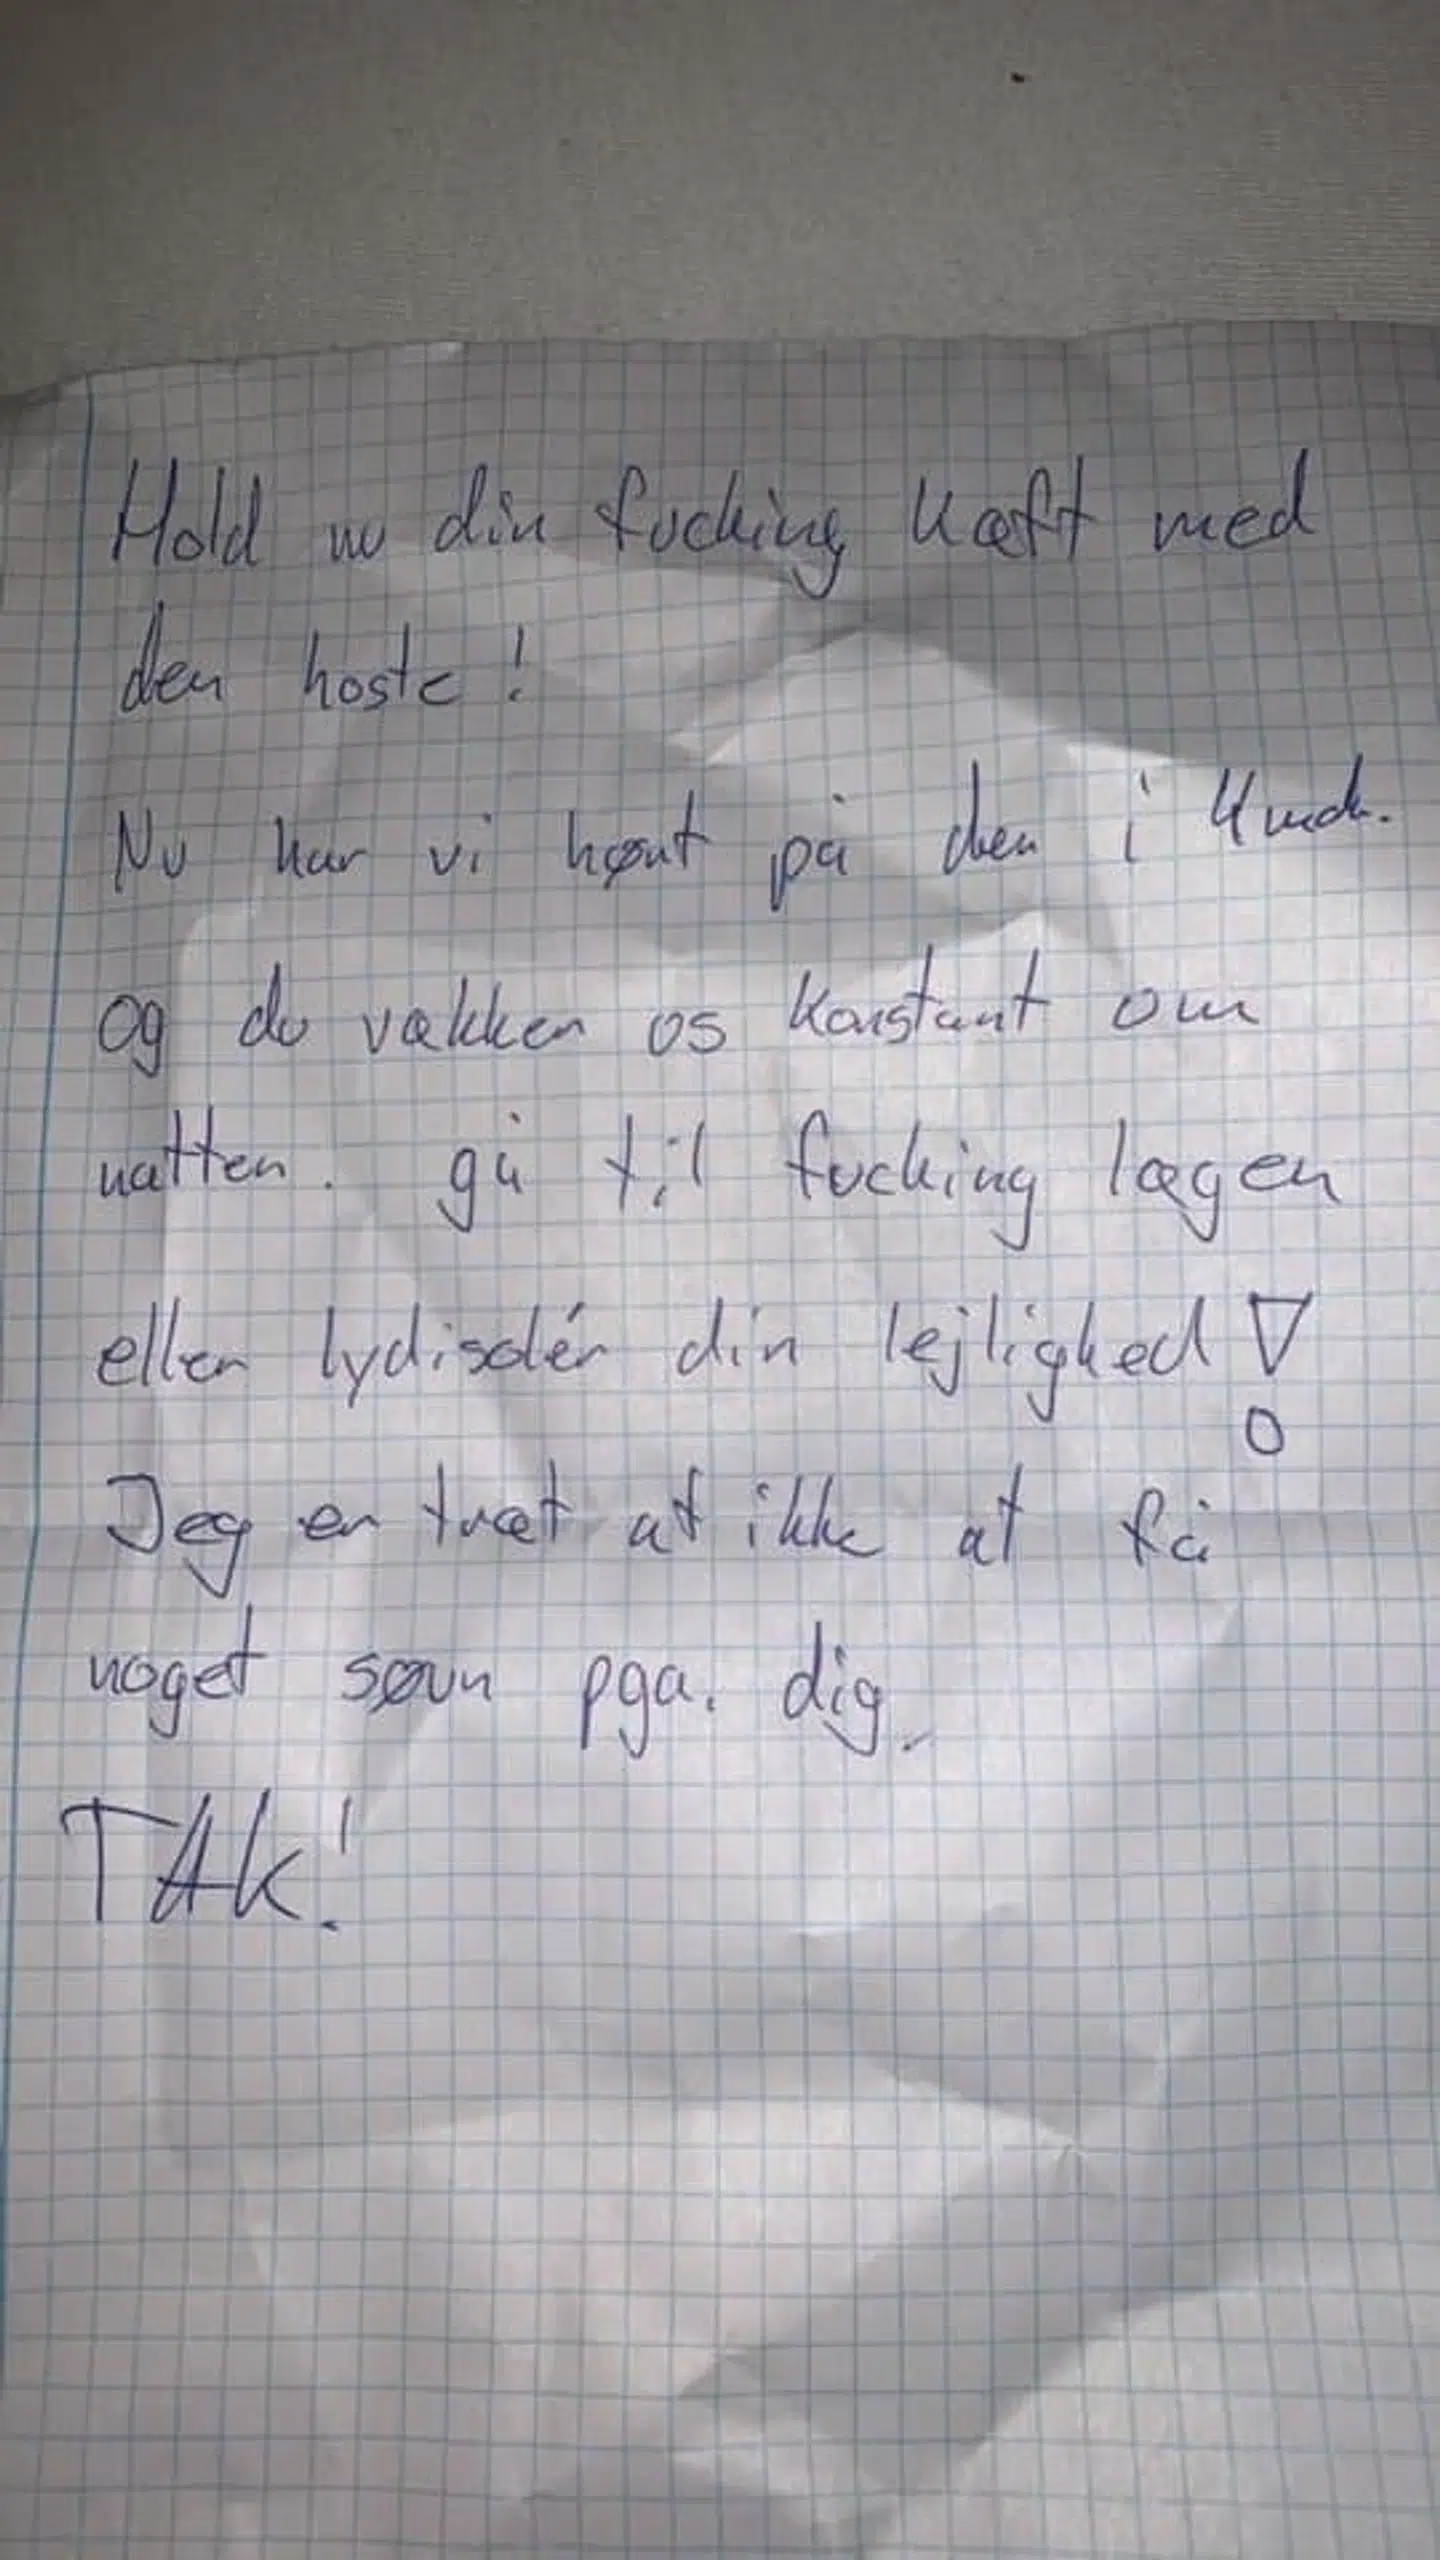 Hold nu din fucking kæft med
den hoste!
Nu har vi hørt på den i 4 mdr.
og du vækker os konstant om
natten. gå til fucking lægen
eller lydisolér din lejlighed!
Jeg er træt af ikke at få
noget søvn pga. dig.
TAK!